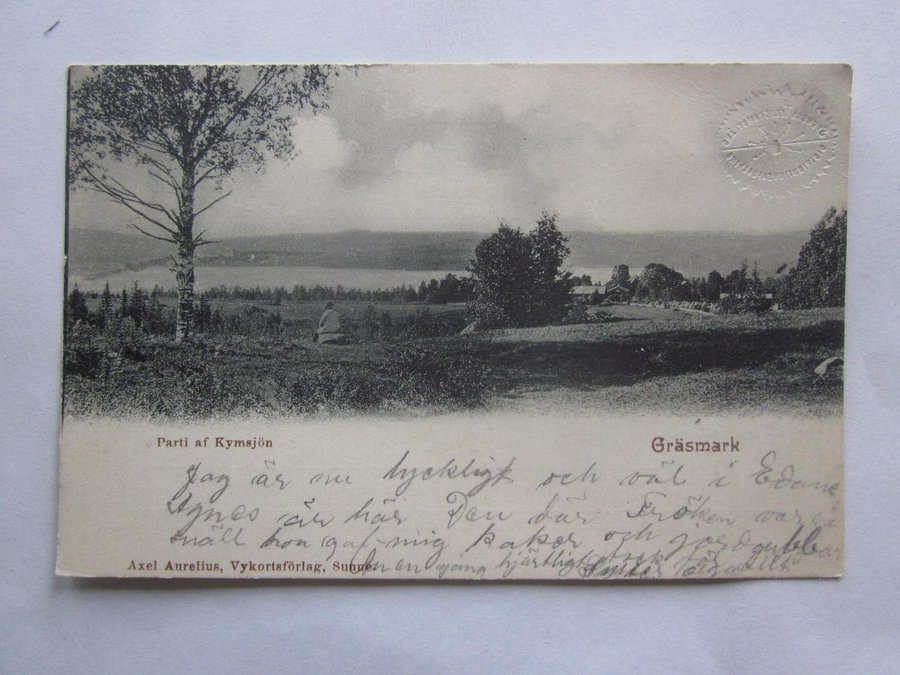 Parti af Kymsjön
Gräsmark
Jag är nu lyckligt och väl i Edane
Agnes är här Den där Fröken var så
snäll hon gaf mig kakor och jordgubbar
en gång hjärtligt tack
Axel Aurelius, Vykortsförlag, Sunne